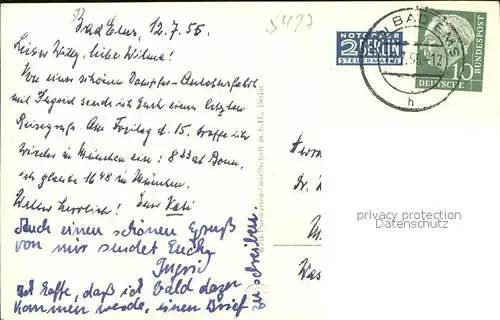 Bad Ems, 12.7.55.
5427
Lieber Willy, liebe Wilma!
Von einer schönen Dampfer-Autobusfahrt
mit Ingrid sende ich Euch einen letzten
Reisegruß. Am Freitag d. 15. treffe ich
wieder in München ein: 8 33 ab Bonn,
ich glaube 16 48 in München.
Wetter herrlich! Euer Vati
Auch einen schönen Gruß
von mir sendet Euch
Ingrid
Ich hoffe, daß ich bald dazu
kommen werde, einen Brief
zu schreiben.
m.b.H., Berlin
NOTOPFER
2 BERLIN
STEUERMARKE
BAD EMS
h
10
DEUTSCHE
BUNDESPOST
privacy protection
Datenschutz